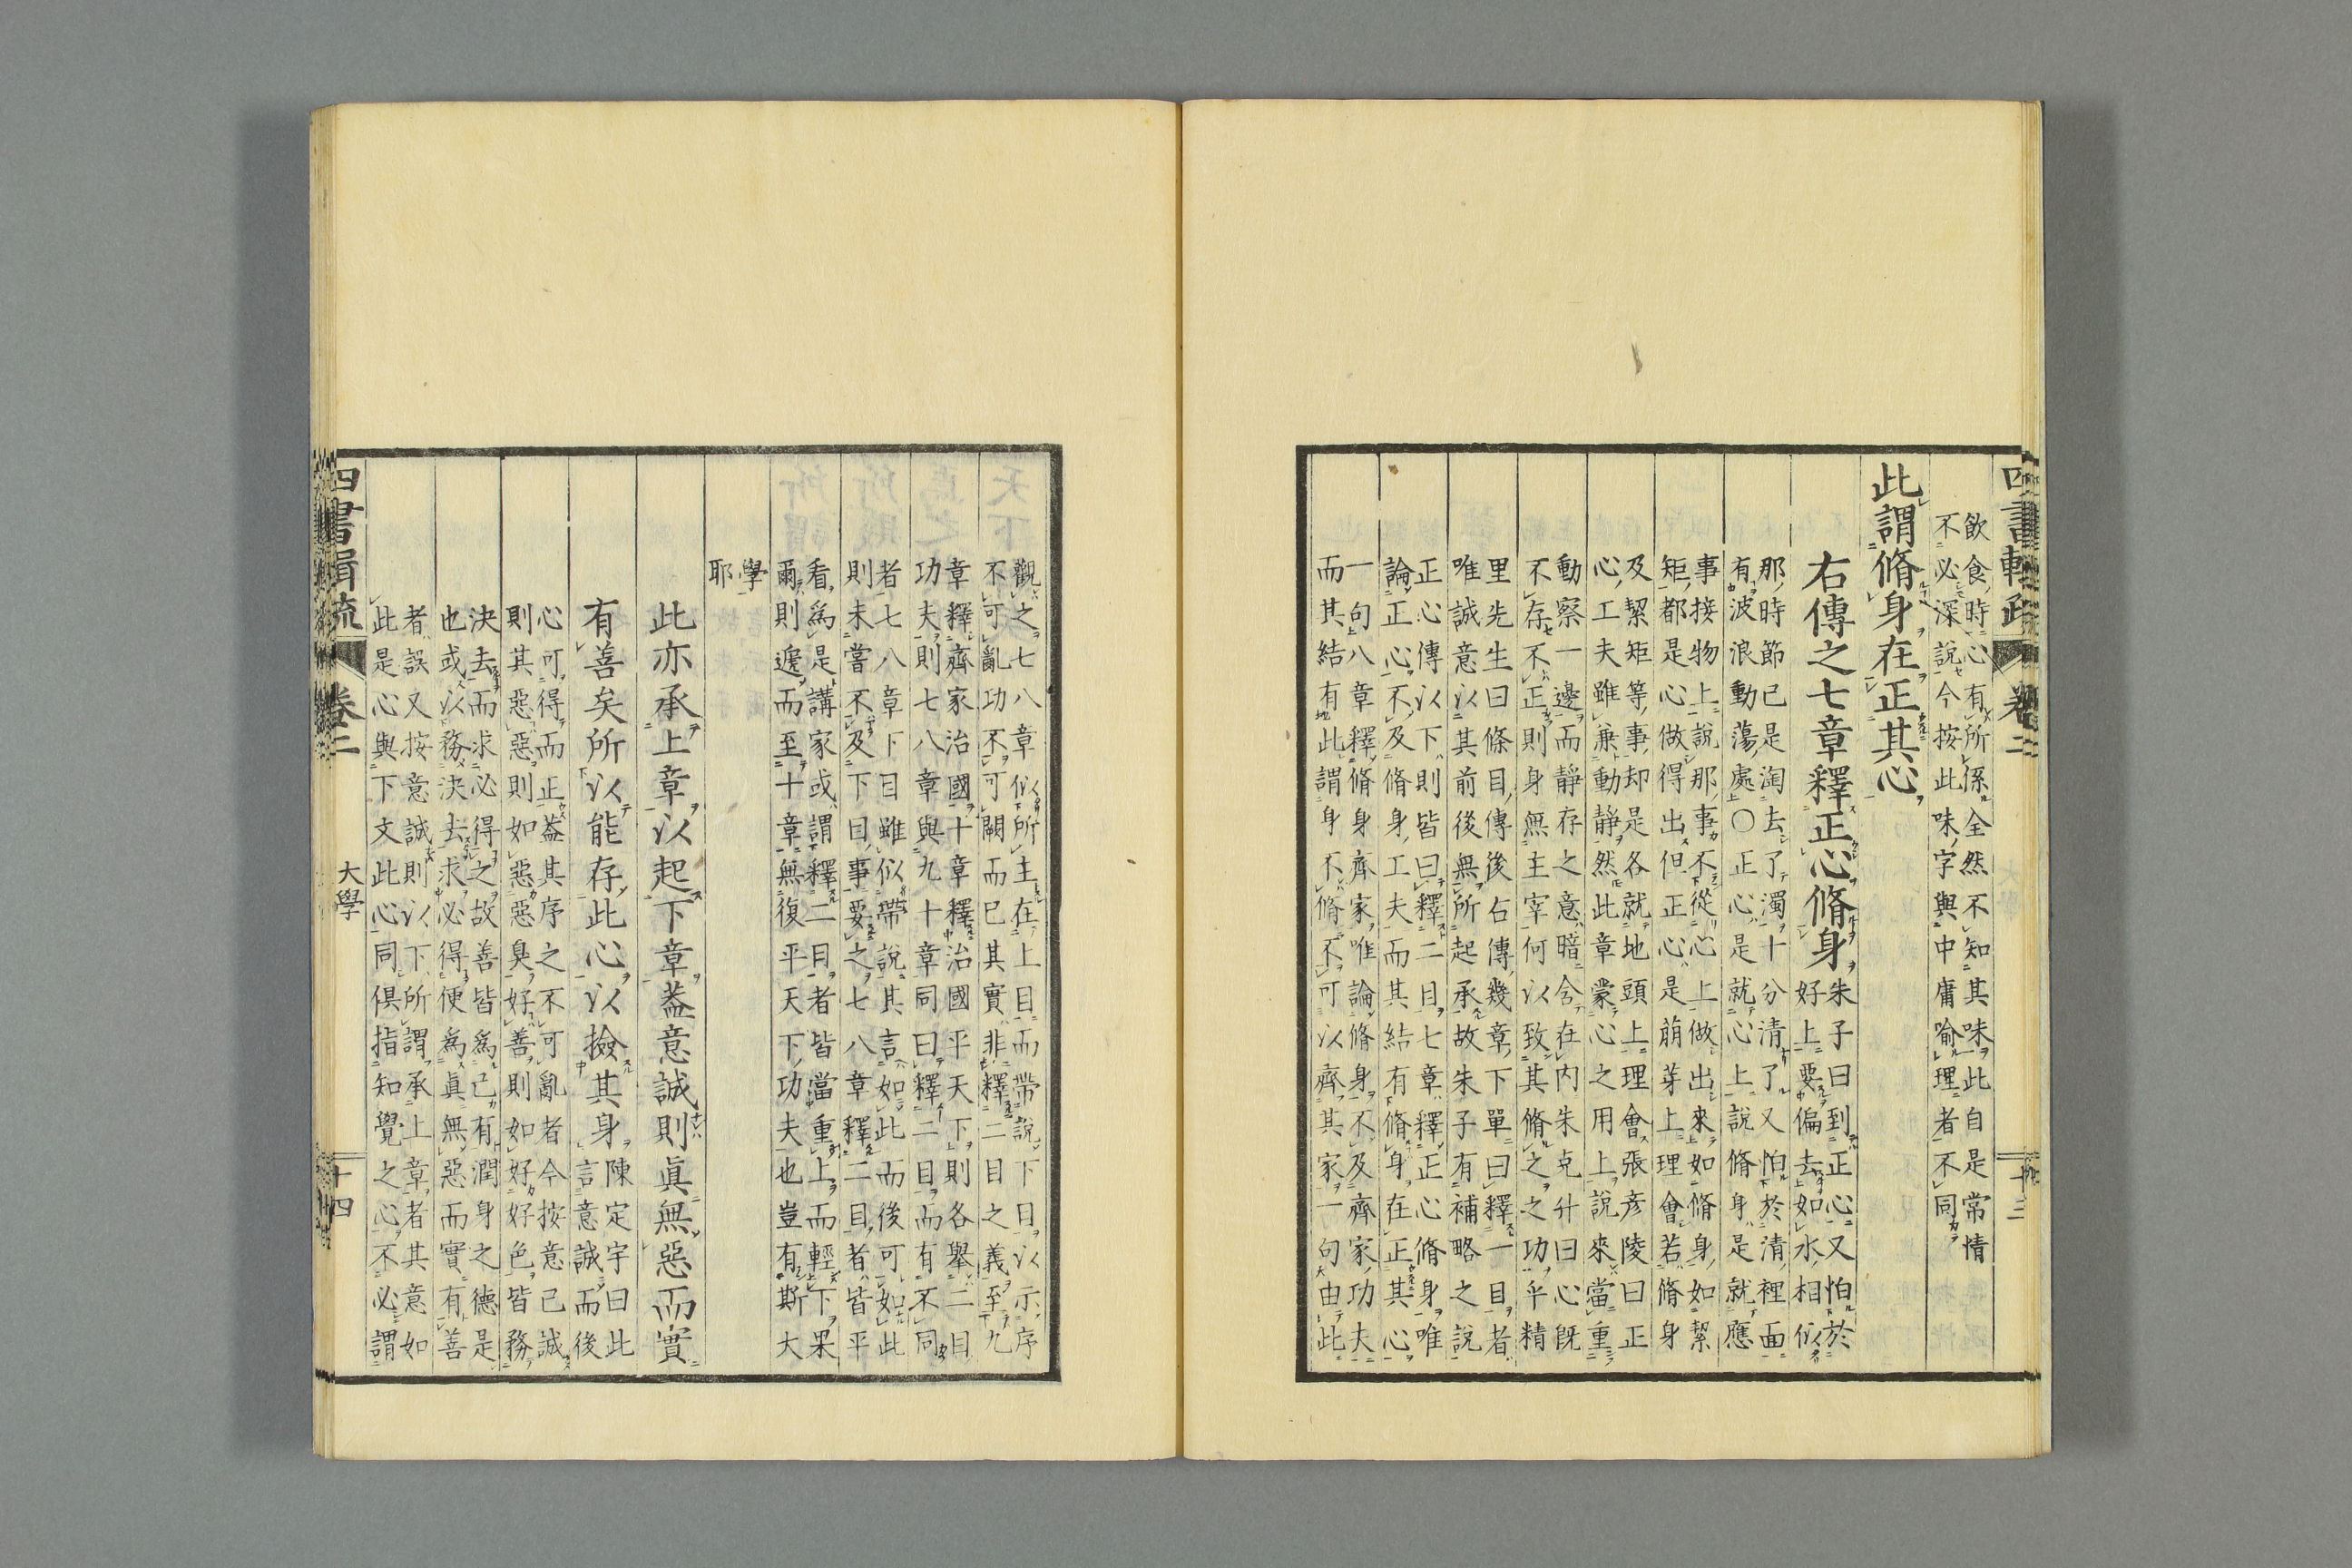 四書輯疏 卷二 十三
飲食時心有所係全然不知其味此自是常情
不必深說今按此味字與中庸喻理者不同
此謂脩身在正其心
右傳之七章釋正心脩身
朱子曰到正心又怕於
好上要偏去如水相似
那時節已是淘去了濁十分清了又怕於清裡面
有波浪動蕩處〇正心是就心上說脩身是就應
事接物上說那事不從心上做出來如脩身如絜
矩都是心做得出但正心是萠芽上理會若脩身
及絜矩等事却是各就地頭上理會張彦陵曰正
心工夫雖兼動靜然此章蒙心之用上說來當重
動察一邊而靜存之意暗含在内朱克升曰心旣
不存不正則身無主宰何以致其脩之之功乎精
里先生曰條目傳後右傳幾章下單曰釋一目者
唯誠意以其前後無所起承故朱子有補略之說
正心傳以下則皆曰釋二目七章釋正心脩身唯
論正心不及脩身工夫而其結有脩身在正其心
一句八章釋脩身齊家唯論脩身不及齊家功夫
而其結有此謂身不脩不可以齊其家一句由此
觀之七八章似所主在上目而帶說下目以示序
不可亂功不可闕而已其實非釋二目之義至九
章釋齊家治國十章釋治國平天下則各舉二目
功夫則七八章與九十章同曰釋二目而有不同
者七八章下目雖似帶說其言如此而後可如此
則未嘗不及下目事要之七八章釋二目者皆平
看爲是講家或謂釋二目者皆當重上而輕下果
爾則遞而至十章無復平天下功夫也豈有斯大
學
耶
此亦承上章以起下章葢意誠則眞無惡而實
有善矣所以能存此心以撿其身
陳定宇曰此
言意誠而後
心可得而正葢其序之不可亂者今按意已誠
則其惡惡則如惡惡臭好善則如好好色皆務
決去而求必得之故善皆爲己有潤身之德是
也或以務決去求必得便爲眞無惡而實有善
者誤又按意誠則以下所謂承上章者其意如
此是心與下文此心同俱指知覺之心不必謂
四書輯疏 卷二 大學 十四